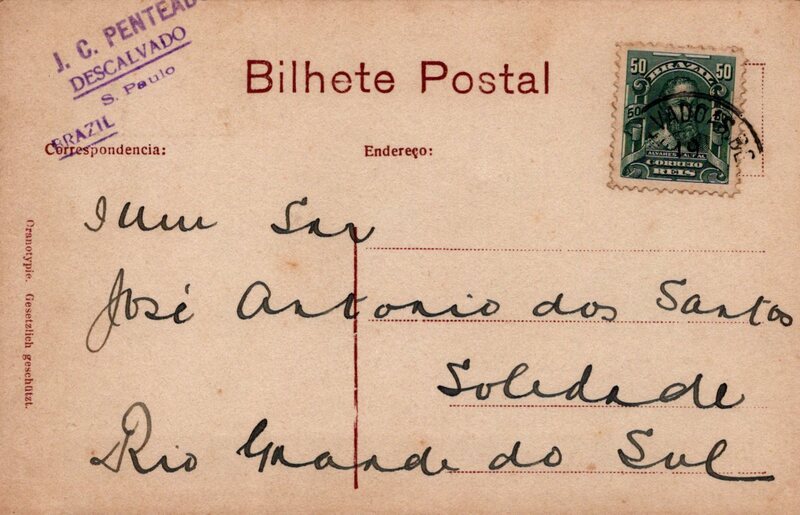 J. C. PENTEADO
DESCALVADO
S. Paulo
BRAZIL
Bilhete Postal
50 BRAZIL 50
CORREIO
REIS
Correspondencia:
Endereço:
Illmo Snr
José Antonio dos Santos
Soledade
Rio Grande do Sul
Oranotypie. Gesetzlich geschützt.